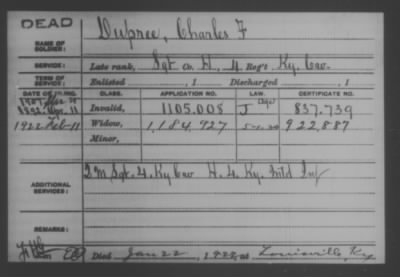 DEAD
Dupree, Charles F
NAME OF SOLDIER:
SERVICE: Late rank, Sgt Co. H, 4 Reg't Ky. Cav.
TERM OF SERVICE: Enlisted , 1 Discharged , 1
DATE OF FILING. CLASS. APPLICATION NO. LAW. CERTIFICATE NO.
1892 Mar. 11 Invalid, 1105.008 J 837.739
1922 Feb 11 Widow, 1,184,927 5-1-20 922,887
Minor,
ADDITIONAL SERVICES: Q.M. Sgt. 4. Ky Cav H. 4. Ky. Mtd Inf
REMARKS:
Died Jan 22, 1922 at Louisville, Ky